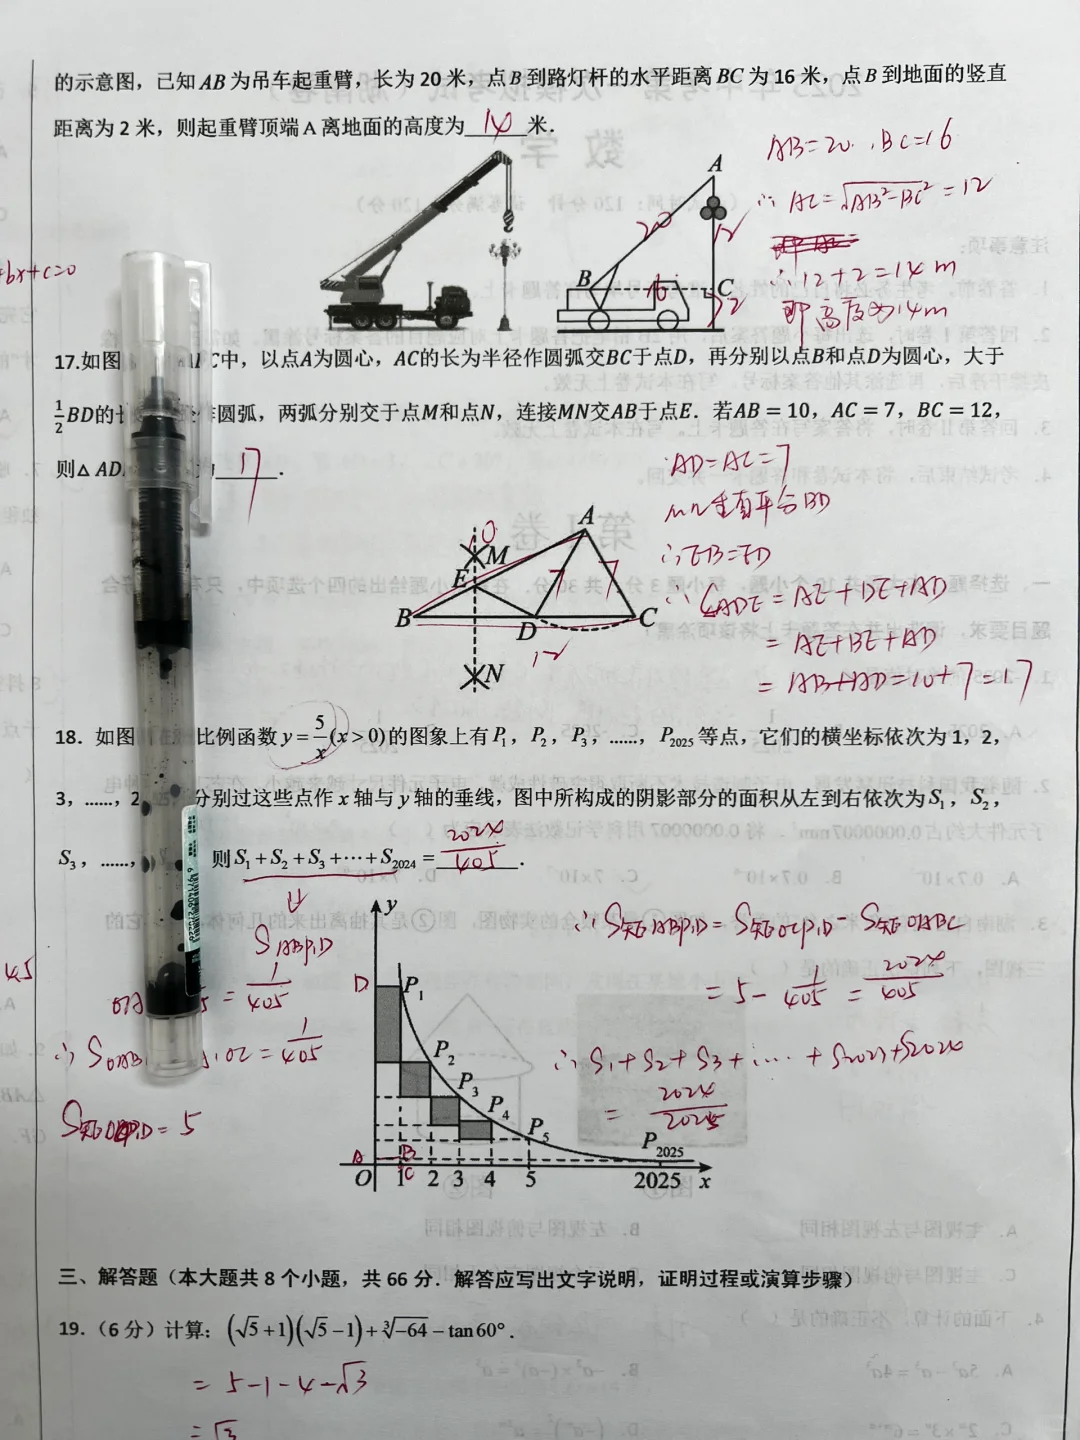 的示意图，已知AB为吊车起重臂，长为20米，点B到路灯杆的水平距离BC为16米，点B到地面的竖直
距离为2米，则起重臂顶端A离地面的高度为14米．
AB=20，BC=16
∴AC=√AB²-BC²=12
∴12+2=14m
即高度为14m
A
20
12
B
16
C
2
+bx+c=0
17.如图
C中，以点A为圆心，AC的长为半径作圆弧交BC于点D，再分别以点B和点D为圆心，大于
½BD的长
作圆弧，两弧分别交于点M和点N，连接MN交AB于点E．若AB＝10，AC＝7，BC＝12，
则△AD
17．
AD=AC=7
MN垂直平分BD
∴EB=ED
∴C△ADE=AE+DE+AD
=AE+BE+AD
=AB+AD=10+7=17
A
10
M
E
7
7
B
D
C
12
N
18．如图
比例函数y=5/x(x>0)的图象上有P₁，P₂，P₃，……，P₂₀₂₅等点，它们的横坐标依次为1，2，
3，……，2
分别过这些点作x轴与y轴的垂线，图中所构成的阴影部分的面积从左到右依次为S₁，S₂，
S₃，……，
则S₁+S₂+S₃+⋯+S₂₀₂₄=2024/405．
S ABP₁D
=1/405
OC=1/405
=5
∴S矩ABP₁D=S矩OCP₁D-S矩OABC
=5-1/405=2024/405
∴S₁+S₂+S₃+…+S2023+S2024
=2024/2025
y
D
P₁
P₂
P₃
P₄
P₅
P₂₀₂₅
A
B
O
1
C
2
3
4
5
2025
x
三、解答题（本大题共8个小题，共66分．解答应写出文字说明，证明过程或演算步骤）
19．（6分）计算：(√5+1)(√5-1)+∛-64-tan60°．
=5-1-4-√3